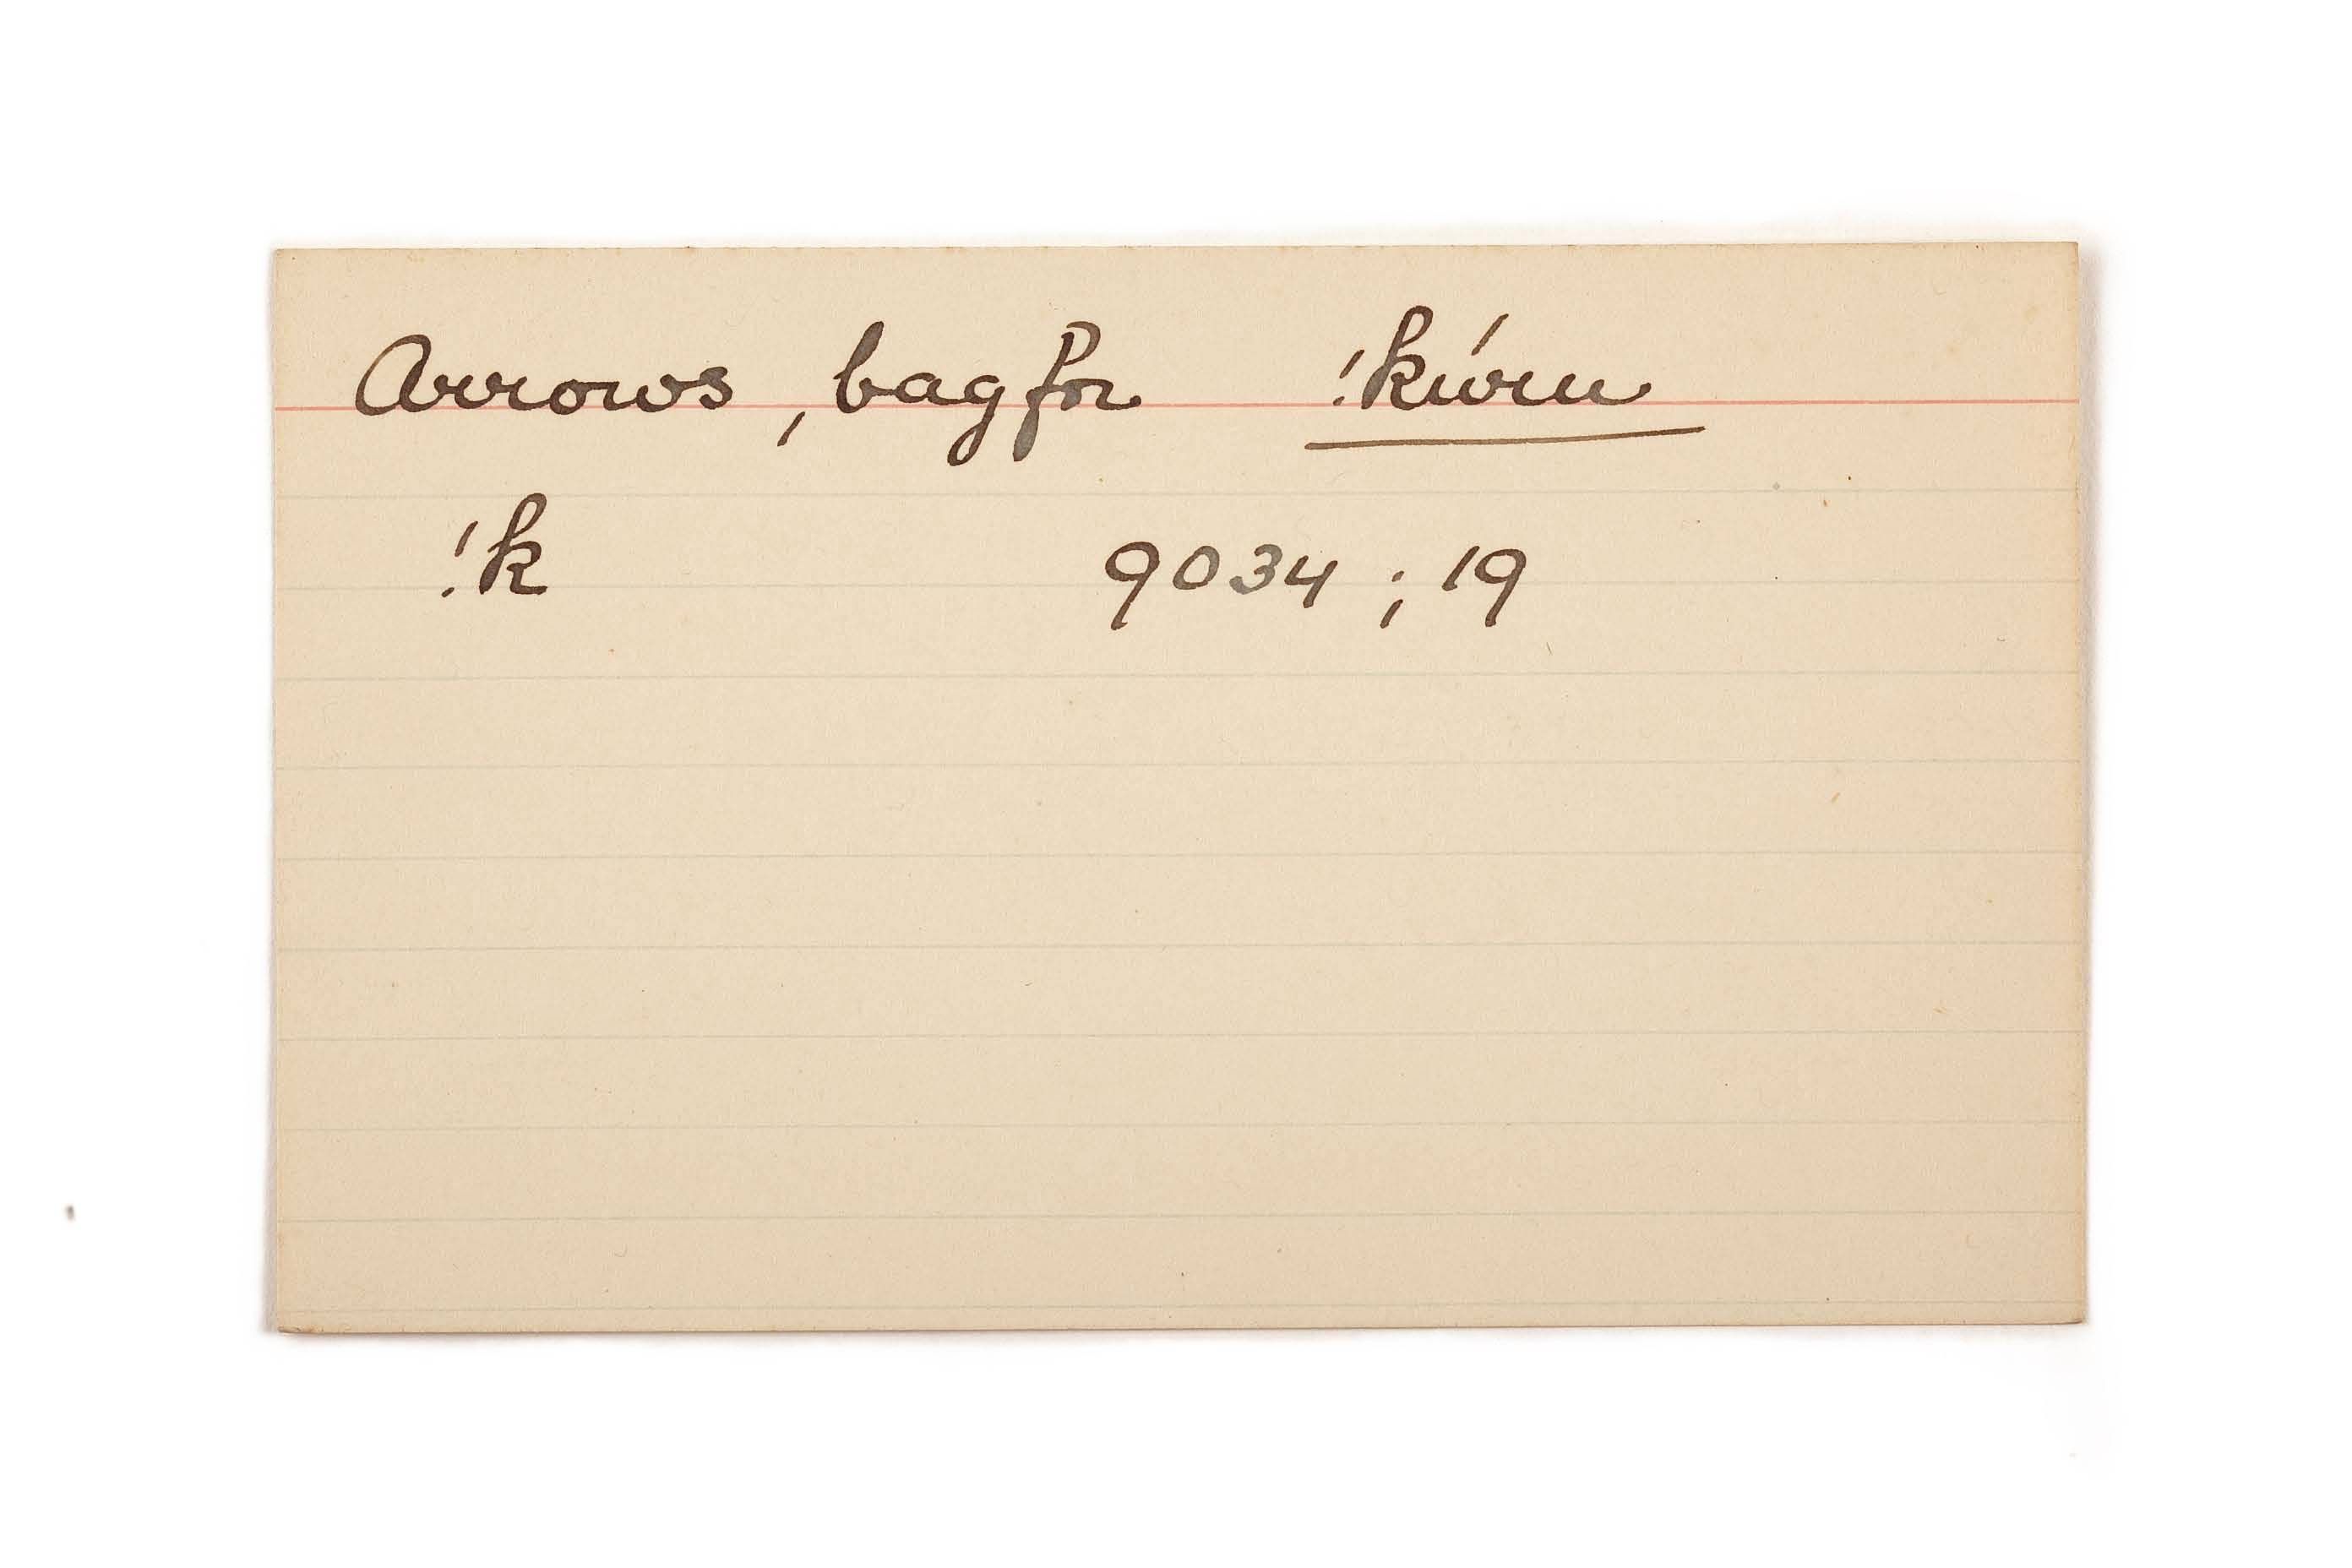 Arrows, bag for !kúru
!k 9034; 19